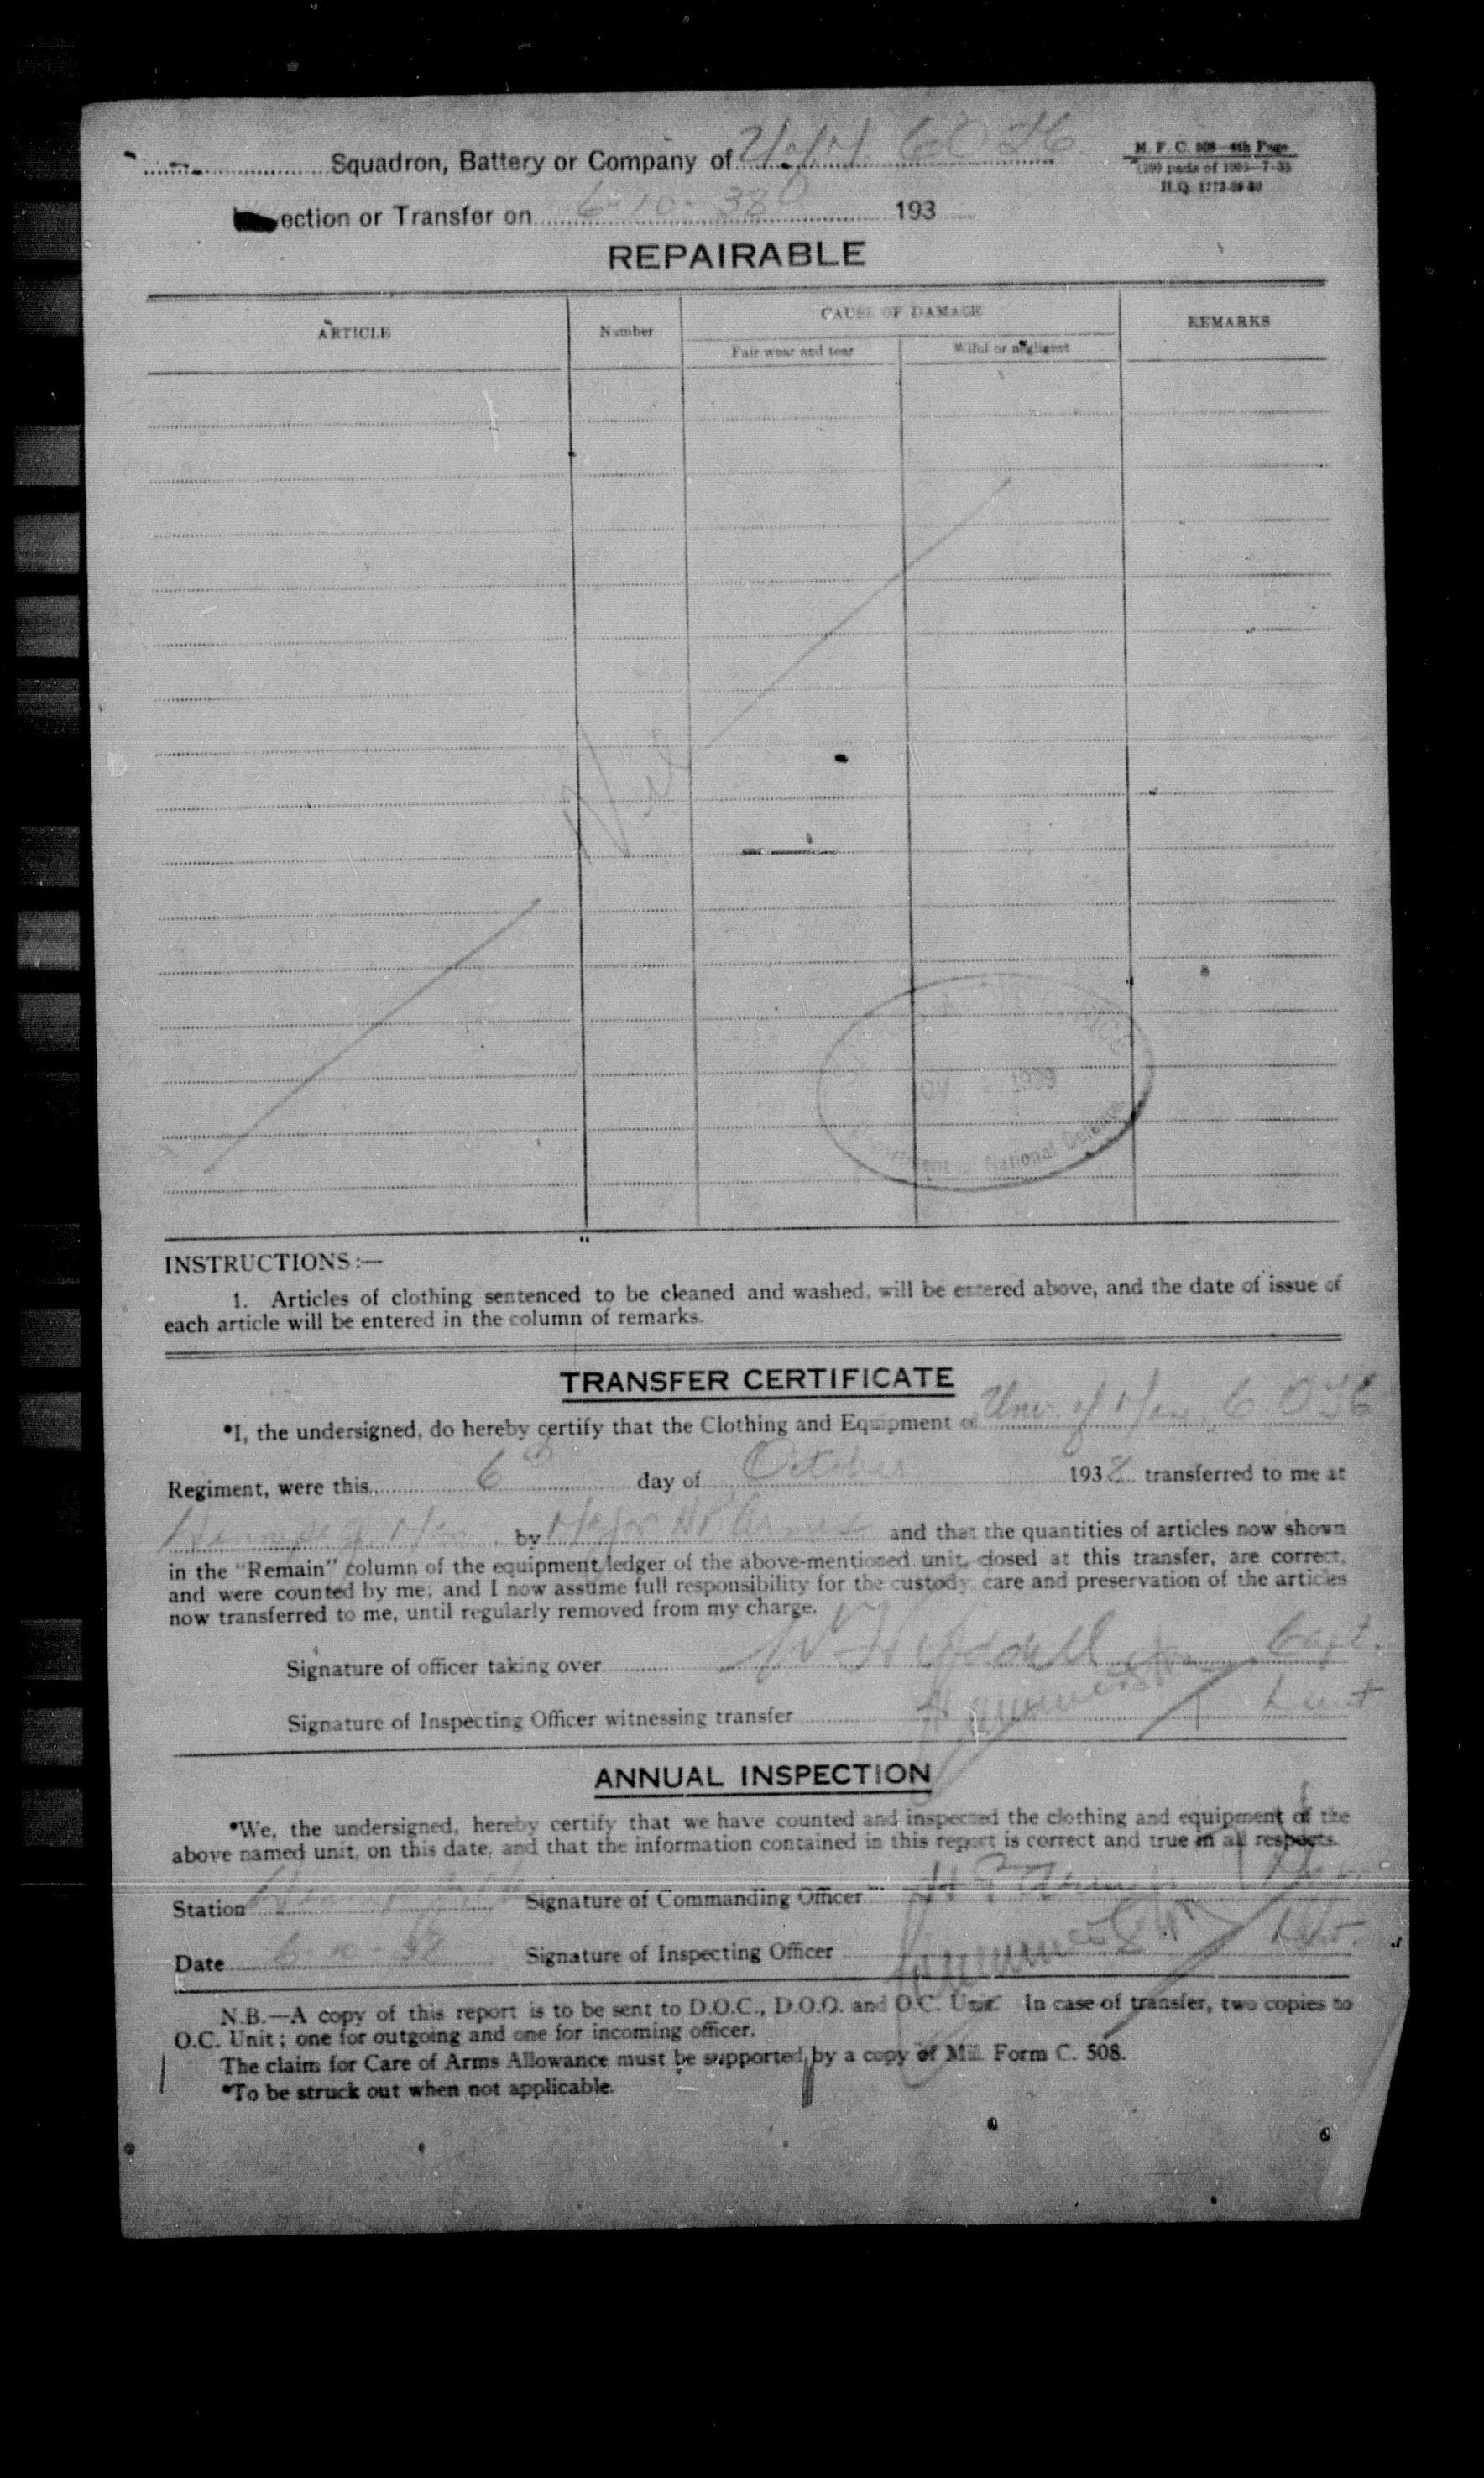 Squadron, Battery or Company of U of M. C.O.T.C.
M. F. C. 508—4th Page
H.Q. 1772-39-80
ection or Transfer on 6-10-38 193
REPAIRABLE
ARTICLE Number CAUSE OF DAMAGE REMARKS
Fair wear and tear Wilful or negligent
Nil
1939
Department of National Defence
INSTRUCTIONS:—
1. Articles of clothing sentenced to be cleaned and washed, will be entered above, and the date of issue of
each article will be entered in the column of remarks.
TRANSFER CERTIFICATE
*I, the undersigned, do hereby certify that the Clothing and Equipment of Univ of Man. C.O.T.C.
Regiment, were this 6th day of October 1938 transferred to me at
Winnipeg Man by Major and that the quantities of articles now shown
in the "Remain" column of the equipment ledger of the above-mentioned unit, closed at this transfer, are correct,
and were counted by me; and I now assume full responsibility for the custody, care and preservation of the articles
now transferred to me, until regularly removed from my charge.
Signature of officer taking over Capt.
Signature of Inspecting Officer witnessing transfer Lieut
ANNUAL INSPECTION
*We, the undersigned, hereby certify that we have counted and inspected the clothing and equipment of the
above named unit, on this date, and that the information contained in this report is correct and true in all respects.
Station Signature of Commanding Officer
Date 6-10-38 Signature of Inspecting Officer
N.B.—A copy of this report is to be sent to D.O.C., D.O.O. and O.C. Unit. In case of transfer, two copies to
O.C. Unit; one for outgoing and one for incoming officer.
The claim for Care of Arms Allowance must be supported by a copy of Mil. Form C. 508.
*To be struck out when not applicable.